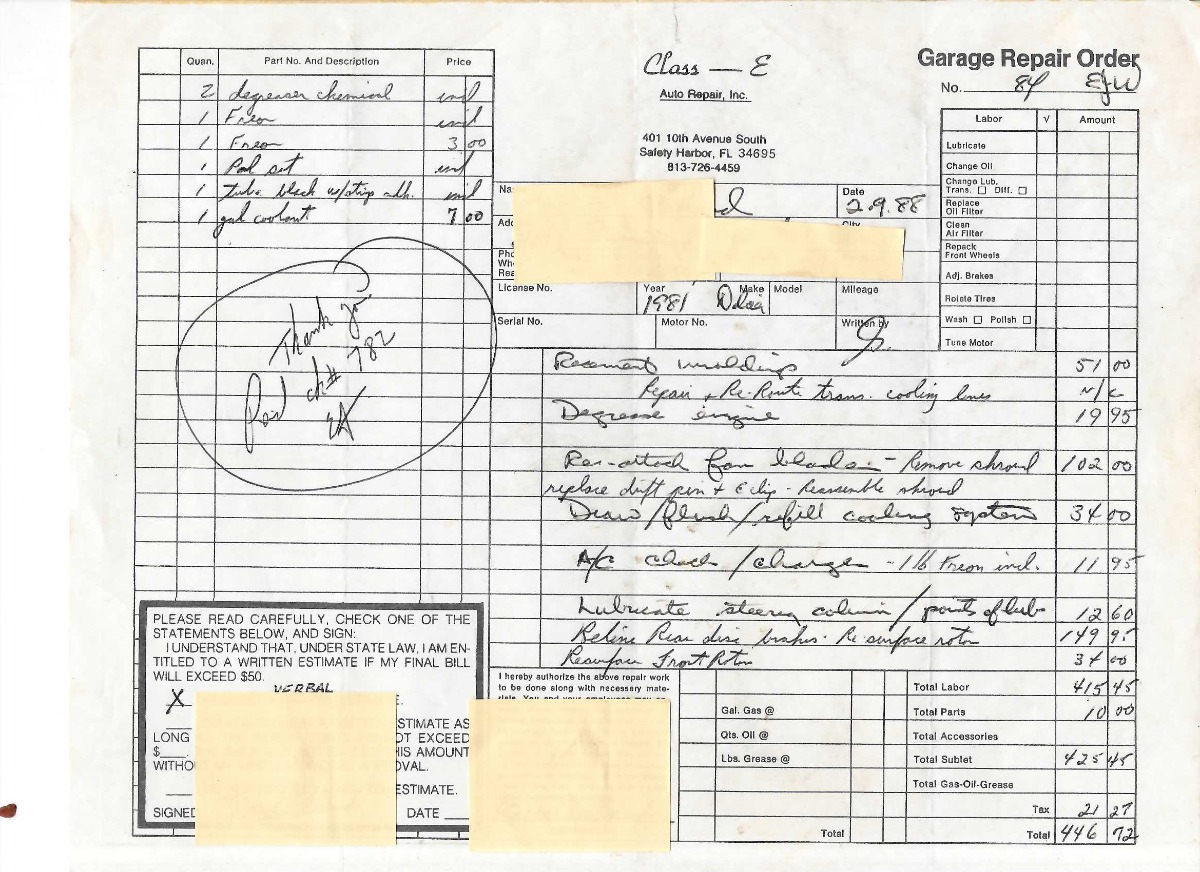 Quan. Part No. And Description Price
2 degreaser chemical incl
1 Freon incl
1 Freon 3 00
1 Pad set incl
1 tube black w/strip adh. incl
1 gal coolant 7 00
Thank You
Paid ck# 782
Class — E
Auto Repair, Inc.
401 10th Avenue South
Safety Harbor, FL 34695
813-726-4459
Garage Repair Order
No. 84 EJW
Labor √ Amount
Lubricate
Change Oil
Change Lub.
Trans. ☐ Diff. ☐
Replace
Oil Filter
Clean
Air Filter
Repack
Front Wheels
Adj. Brakes
Rotate Tires
Wash ☐ Polish ☐
Tune Motor
Date
2.9.88
City
License No. Year Make Model Mileage
1981
Serial No. Motor No. Written By
Recement moldings 51 00
Repair & Re-Route trans. cooling lines N/C
Degrease engine 19 95
Re-attach fan blade - Remove shroud 102 00
replace drift pin & E clip - Reassemble shroud
Drain/flush/refill cooling system 34 00
A/C check/charge - 1 lb Freon incl. 11 95
Lubricate steering column/points of lube 12 60
Reline Rear disc brakes - Re surface rotor 149 95
Resurface Front Rotor 34 00
PLEASE READ CAREFULLY, CHECK ONE OF THE
STATEMENTS BELOW, AND SIGN:
I UNDERSTAND THAT, UNDER STATE LAW, I AM EN-
TITLED TO A WRITTEN ESTIMATE IF MY FINAL BILL
WILL EXCEED $50.
X VERBAL
ESTIMATE AS
LONG EXCEED
$ AMOUNT
ESTIMATE.
DATE
I hereby authorize the above repair work
to be done along with necessary mate-
Gal. Gas @
Qts. Oil @
Lbs. Grease @
Total
Total Labor 415 45
Total Parts 10 00
Total Accessories
Total Sublet 425 45
Total Gas-Oil-Grease
Tax 21 27
Total 446 72